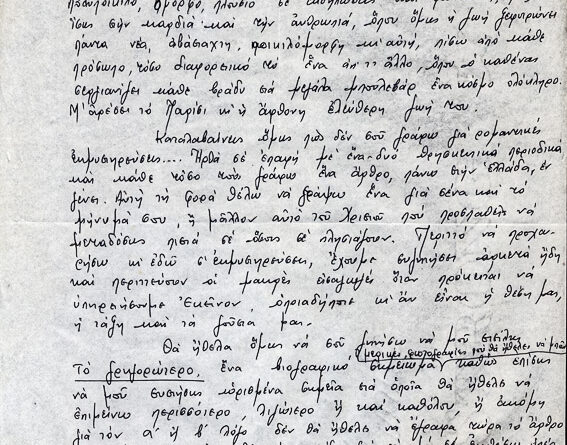 ἴσως στὴν καρδιὰ καὶ τὴν ἀνθρωπιά, ὅπου ὅμως ἡ ζωὴ ξεφυτρώνει
πάντα νέα, ἀβάσταχτη, ποικιλόμορφη κι' αὐτή, πίσω ἀπὸ κάθε
πρόσωπο, τόσο διαφορετικὸ τὸ ἕνα ἀπ' τ' ἄλλο, ὅπου ὁ καθένας
σεργιανίζει κάθε βράδυ στὰ μεγάλα μπουλεβὰρ ἕνα κόσμο ὁλόκληρο.
Μ' ἀρέσει τὸ Παρίσι κι' ἡ ἄφθονη ἐλεύθερη ζωή του.
Καταλαβαίνεις ὅμως πὼς δὲν σοῦ γράφω γιὰ ρομαντικὲς
ἐκμυστηρεύσεις.... Ἦρθα σὲ ἐπαφὴ μὲ ἕνα-δυὸ θρησκευτικὰ περιοδικὰ
καὶ κάθε τόσο τοὺς γράφω ἕνα ἄρθρο, πάνω στὴν Ἑλλάδα, ἐν
γένει. Αὐτὴ τὴ φορὰ θέλω νὰ γράψω ἕνα γιὰ σένα καὶ τὸ
μήνυμά σου, ἢ μᾶλλον αὐτὸ τοῦ Χριστοῦ ποὺ προσπαθεῖς νὰ
μεταδόσης πιστὰ σὲ ὅσους σὲ πλησιάζουν. Περιττὸ νὰ προχω-
ρήσω κι' ἐδῶ σ' ἐκμυστηρεύσεις, ἔχουμε συζητήσει ἀρκετὰ ἤδη
καὶ περιττεύουν οἱ μακρὲς εἰσαγωγὲς ὅταν πρόκειται νὰ
ὑπηρετήσουμε Ἐκεῖνον, ὁποιαδήποτε κι' ἂν εἶναι ἡ θέση μας,
ἡ τάξη καὶ τὰ γοῦστα μας.
Θὰ ἤθελα ὅμως νὰ σοῦ ζητήσω νὰ μοῦ στείλης
μερικὲς φωτογραφίες ποὺ θὰ ἤθελες νὰ
Τὸ γρηγορώτερο, ἕνα βιογραφικὸ σημείωμα καθὼς ἐπίσης
νὰ μοῦ συστήσης ὡρισμένα σημεῖα στὰ ὁποῖα θὰ ἤθελες νὰ
ἐπιμείνω περισσότερο λιγώτερο ἢ καὶ καθόλου, ἢ ἀκόμη
γιὰ τὸν α' ἢ β' λόγο δὲν θὰ ἤθελες νὰ ἔγραφα τώρα τὸ ἄρθρο